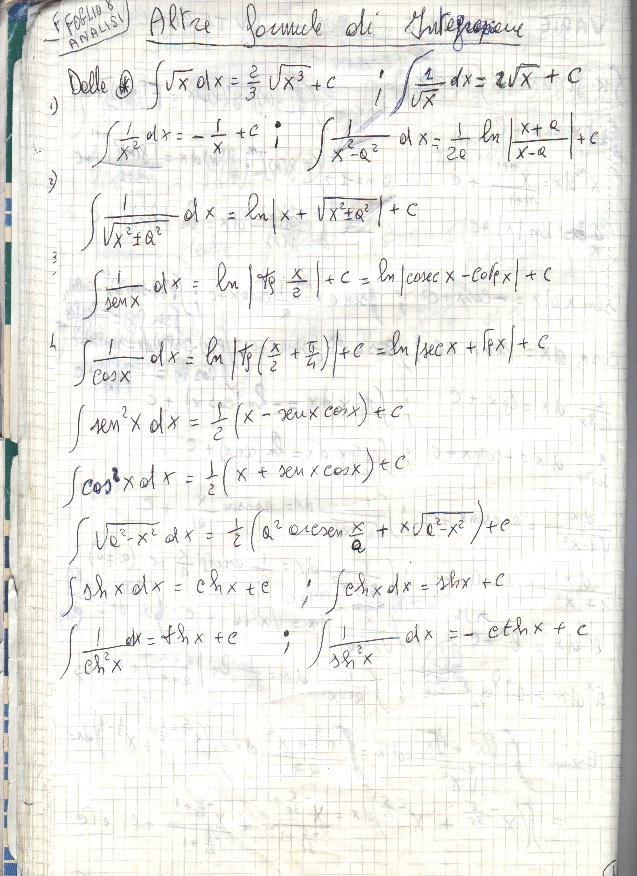 FOGLIO 8
ANALISI
Altre formule di Integrazione
Dalle * ∫ √x dx = 2/3 √x³ + c ; ∫ 1/√x dx = 2√x + c
1) ∫ 1/x² dx = - 1/x + c ; ∫ 1/(x²-a²) dx = 1/2a ln |(x+a)/(x-a)| + c
2) ∫ 1/√(x²±a²) dx = ln |x + √(x²±a²)| + c
3 ∫ 1/senx dx = ln |tg x/2| + c = ln |cosec x - cotg x| + c
4 ∫ 1/cosx dx = ln |tg (x/2 + π/4)| + c = ln |sec x + tg x| + c
∫ sen²x dx = 1/2 (x - senx cosx) + c
∫ cos²x dx = 1/2 (x + senx cosx) + c
∫ √(a²-x²) dx = 1/2 (a² arcsen x/a + x√(a²-x²)) + c
∫ shx dx = chx + c ; ∫ chx dx = shx + c
∫ 1/ch²x dx = thx + c ; ∫ 1/sh²x dx = - cthx + c